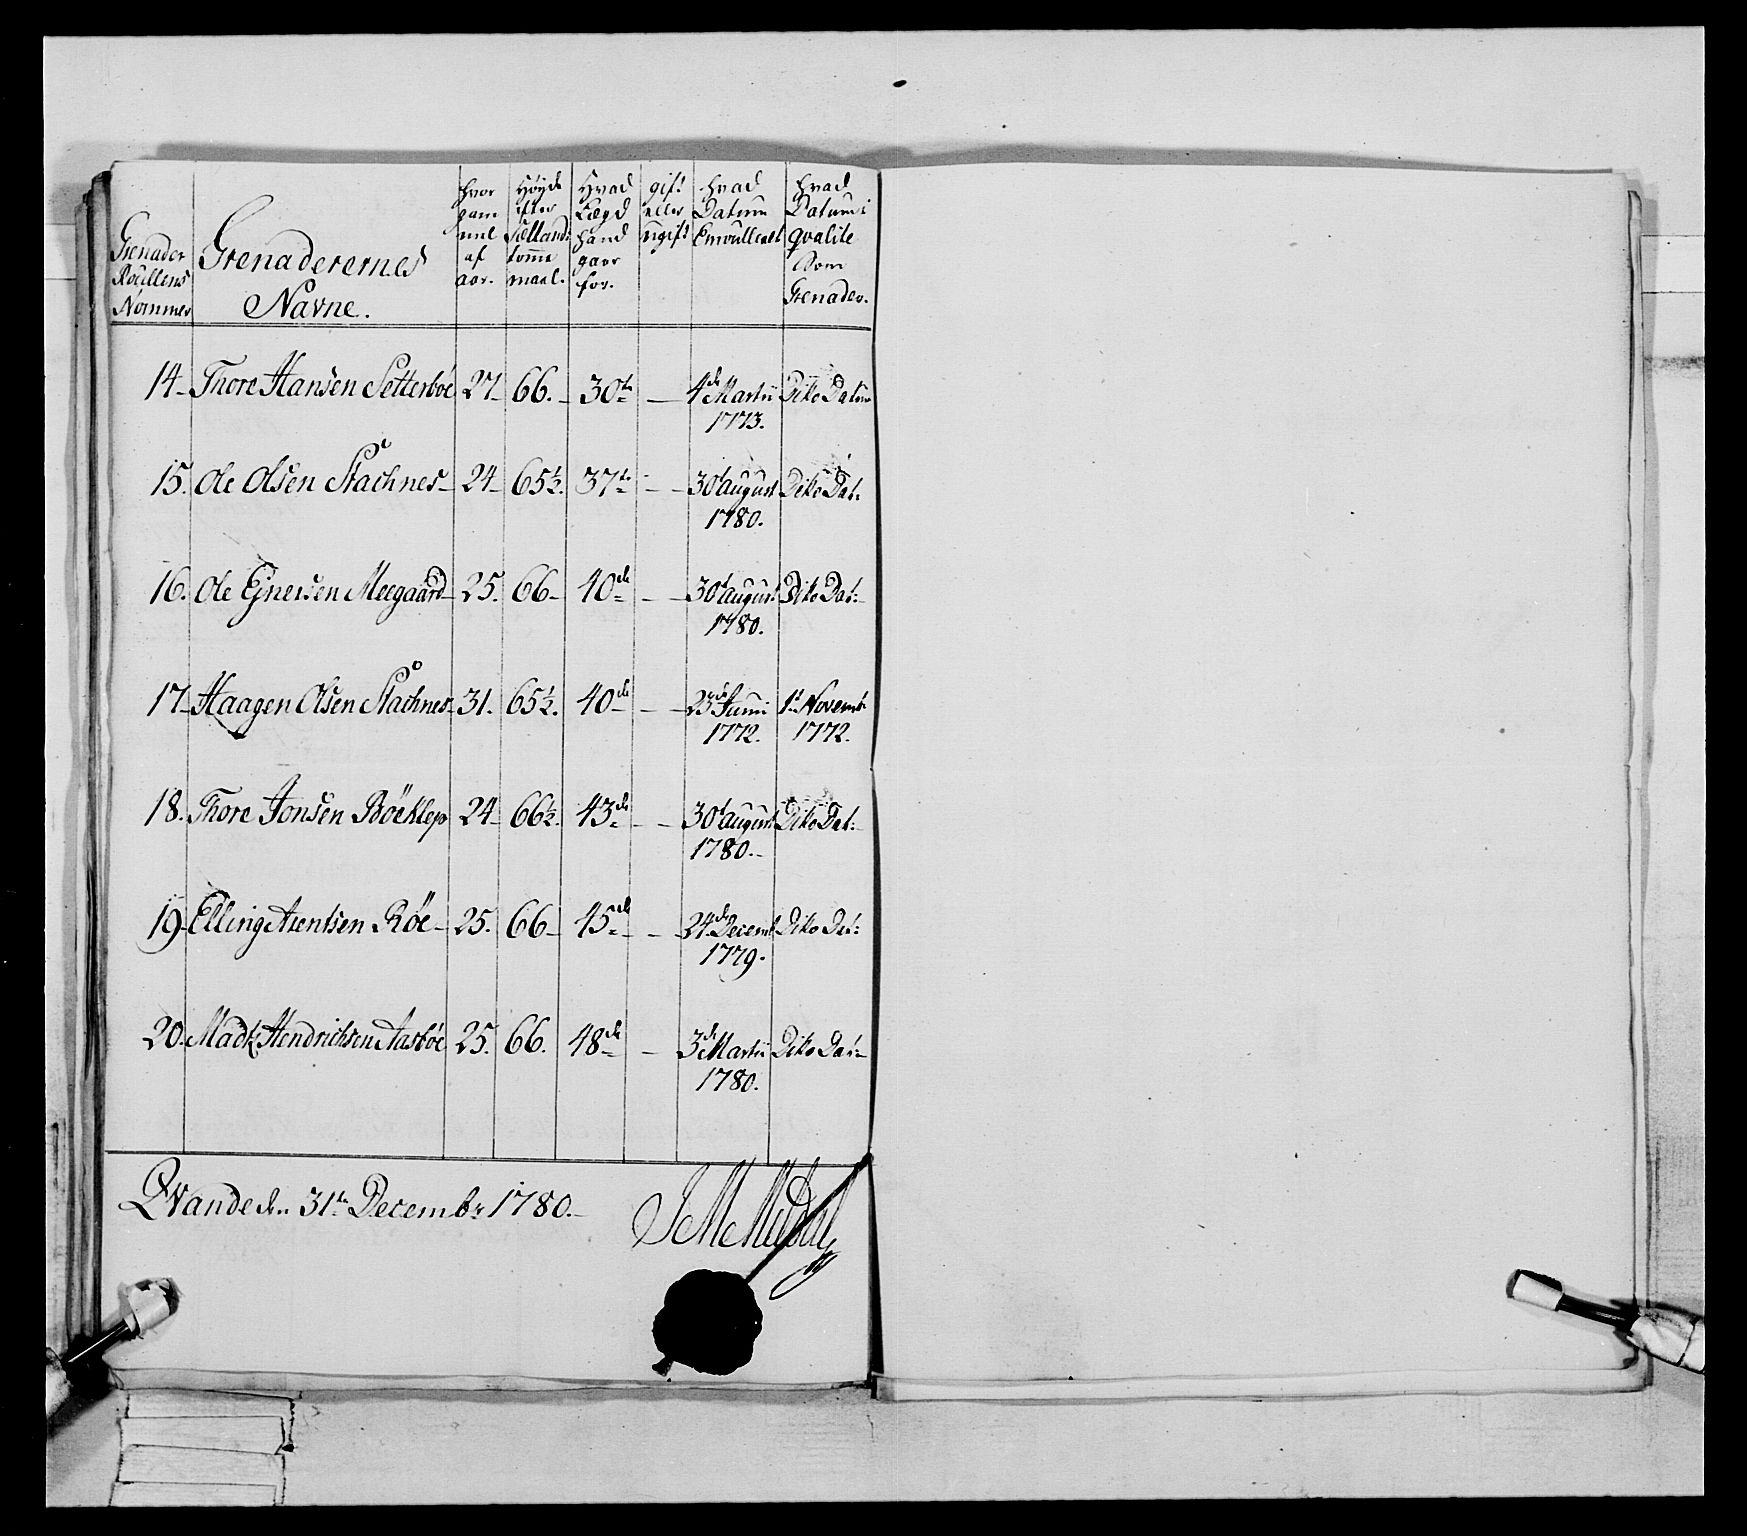 Grenader Roullens Nommer
Grenaderernes Navne.
hvor gammel af aar.
Høyde efter Sællands tomme maal.
Hvad Lægd hand gaar for.
gift eller ugift
hvad Datum Enroulleret
hvad Datum i qvalite som Grenader.
14 Thore Hansen Setterbøe 27 66. 30te — 4de Martii 1773. Dito Datum
15. Ole Olsen Stachnes 24 65½. 37te — 30t August 1780. Dito Dat:
16. Ole Ejnersen Meegaard 25. 66 40de — 30t August 1780. Dito Dat:
17 Haagen Olsen Stachnes 31. 65½. 40de — 23de Junii 1772. 1t Novemb 1772.
18. Thore Jonsen Bøeklep 24 66½. 43de — 30t August 1780. Dito Dat:
19 Elling Arentsen Røe 25. 66 45de — 24de Decemb 1779. Dito Dat:
20. Madtz Hendrichsen Aasbøe 25. 66. 48de — 3de Martii 1780. Dito Dat:
Qvande den 31te Decembr 1780.